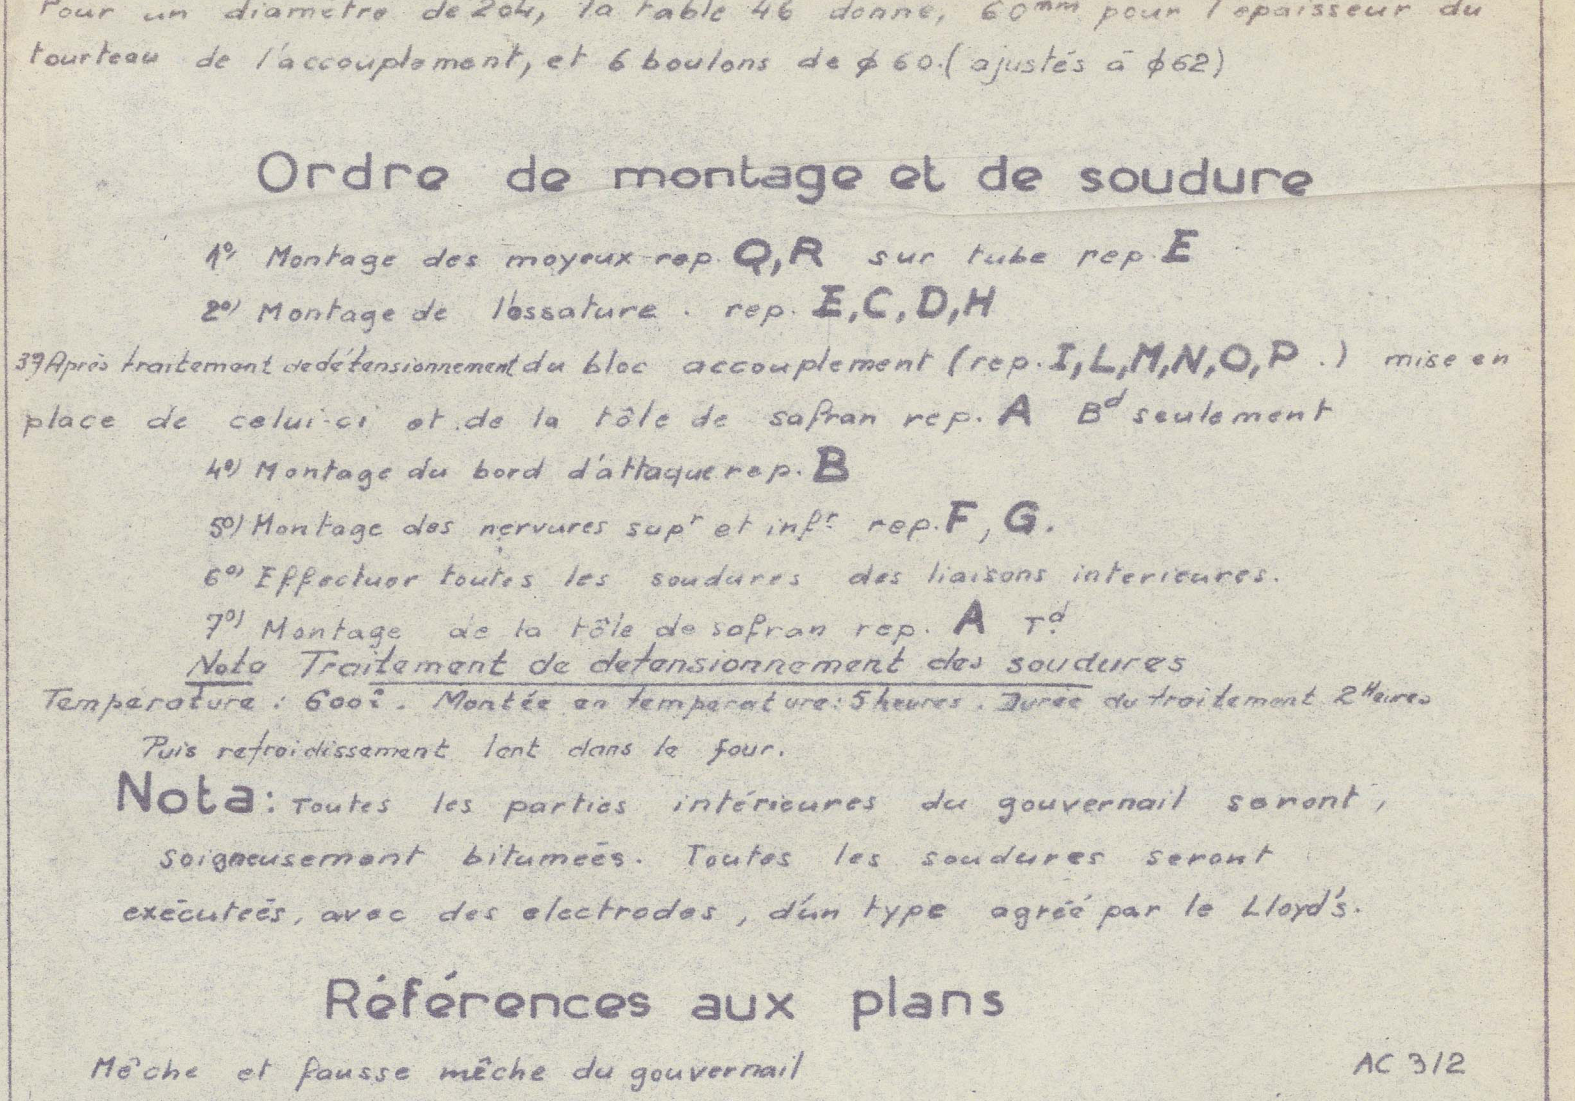 Pour un diamètre de 204, la table 46 donne, 60mm pour l'épaisseur du
tourteau de l'accouplement, et 6 boulons de ϕ 60.( ajustés à ϕ62)
Ordre de montage et de soudure
1º) Montage des moyeux rep. Q,R sur tube rep. E
2º) Montage de l'ossature. rep. E,C,D,H
3º) Après traitement de détensionnement du bloc accouplement (rep. I,L,M,N,O,P.) mise en
place de celui-ci et de la tôle de safran rep. A Bd seulement
4º) Montage du bord d'attaque rep. B
5º) Montage des nervures supr et infr rep. F, G.
6º) Effectuer toutes les soudures des liaisons interieures.
7º) Montage de la tôle de safran rep. A Td.
Nota Traitement de detensionnement des soudures
Température : 600º. Montée en temperature : 5 heures. Durée du traitement 2 Heures
Puis refroidissement lent dans le four.
Nota: Toutes les parties intérieures du gouvernail seront,
soigneusement bitumeés. Toutes les soudures seront
exécuteés, avec des electrodes, d'un type agréé par le Lloyd's.
Références aux plans
Mêche et fausse mêche du gouvernail AC 312